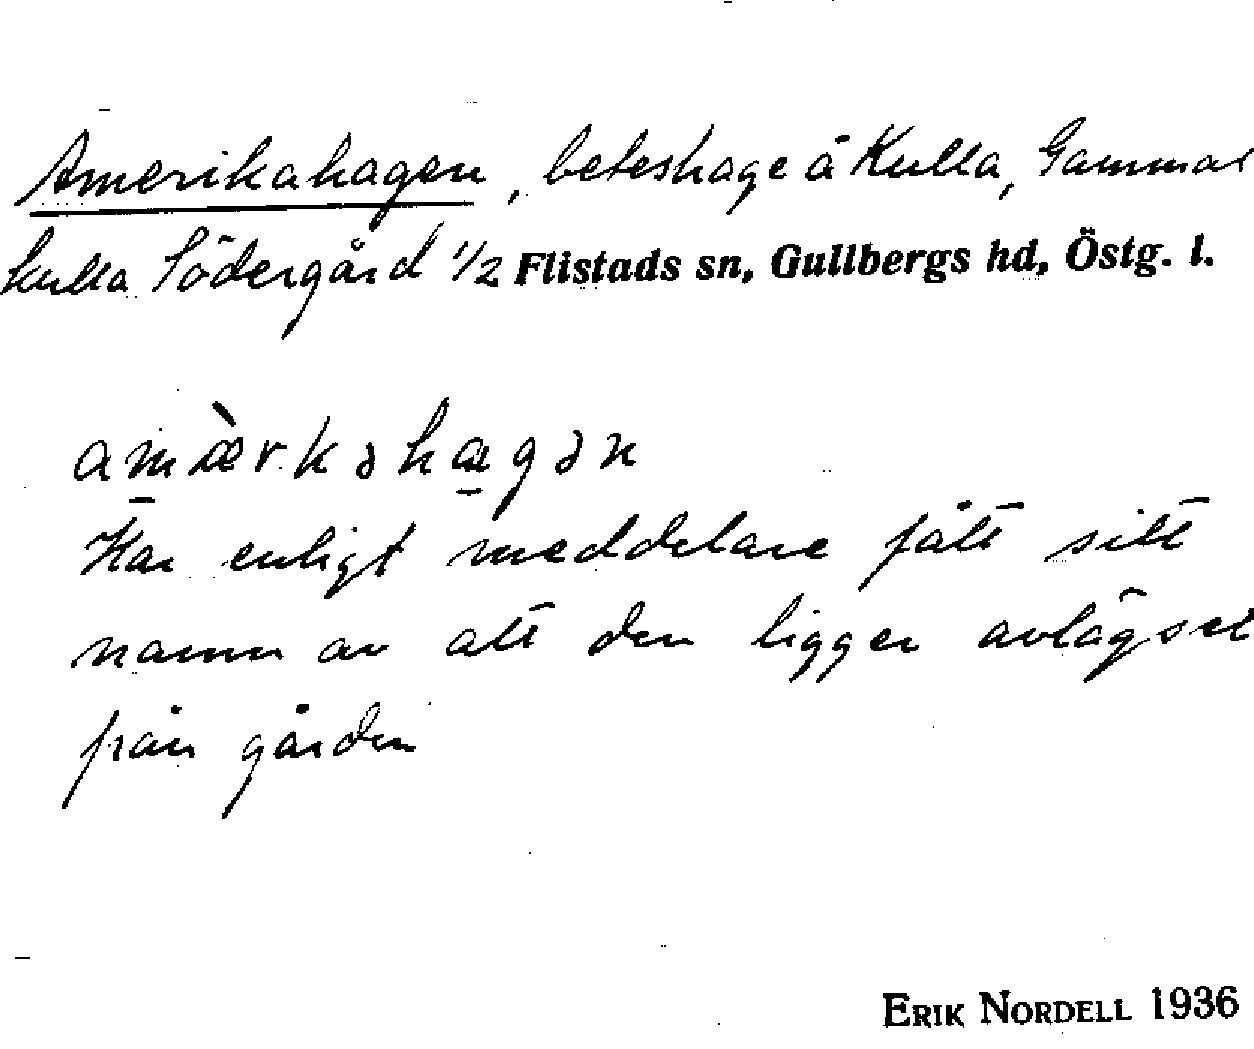 Amerikahagen, beteshage å Kulla, Gammal
kulla Södergård 1/2 Flistads sn, Gullbergs hd, Östg. l.
amæ̀rkəhagən
Har enligt meddelare fått sitt
namn av att den ligger avlägset
från gården
ERIK NORDELL 1936